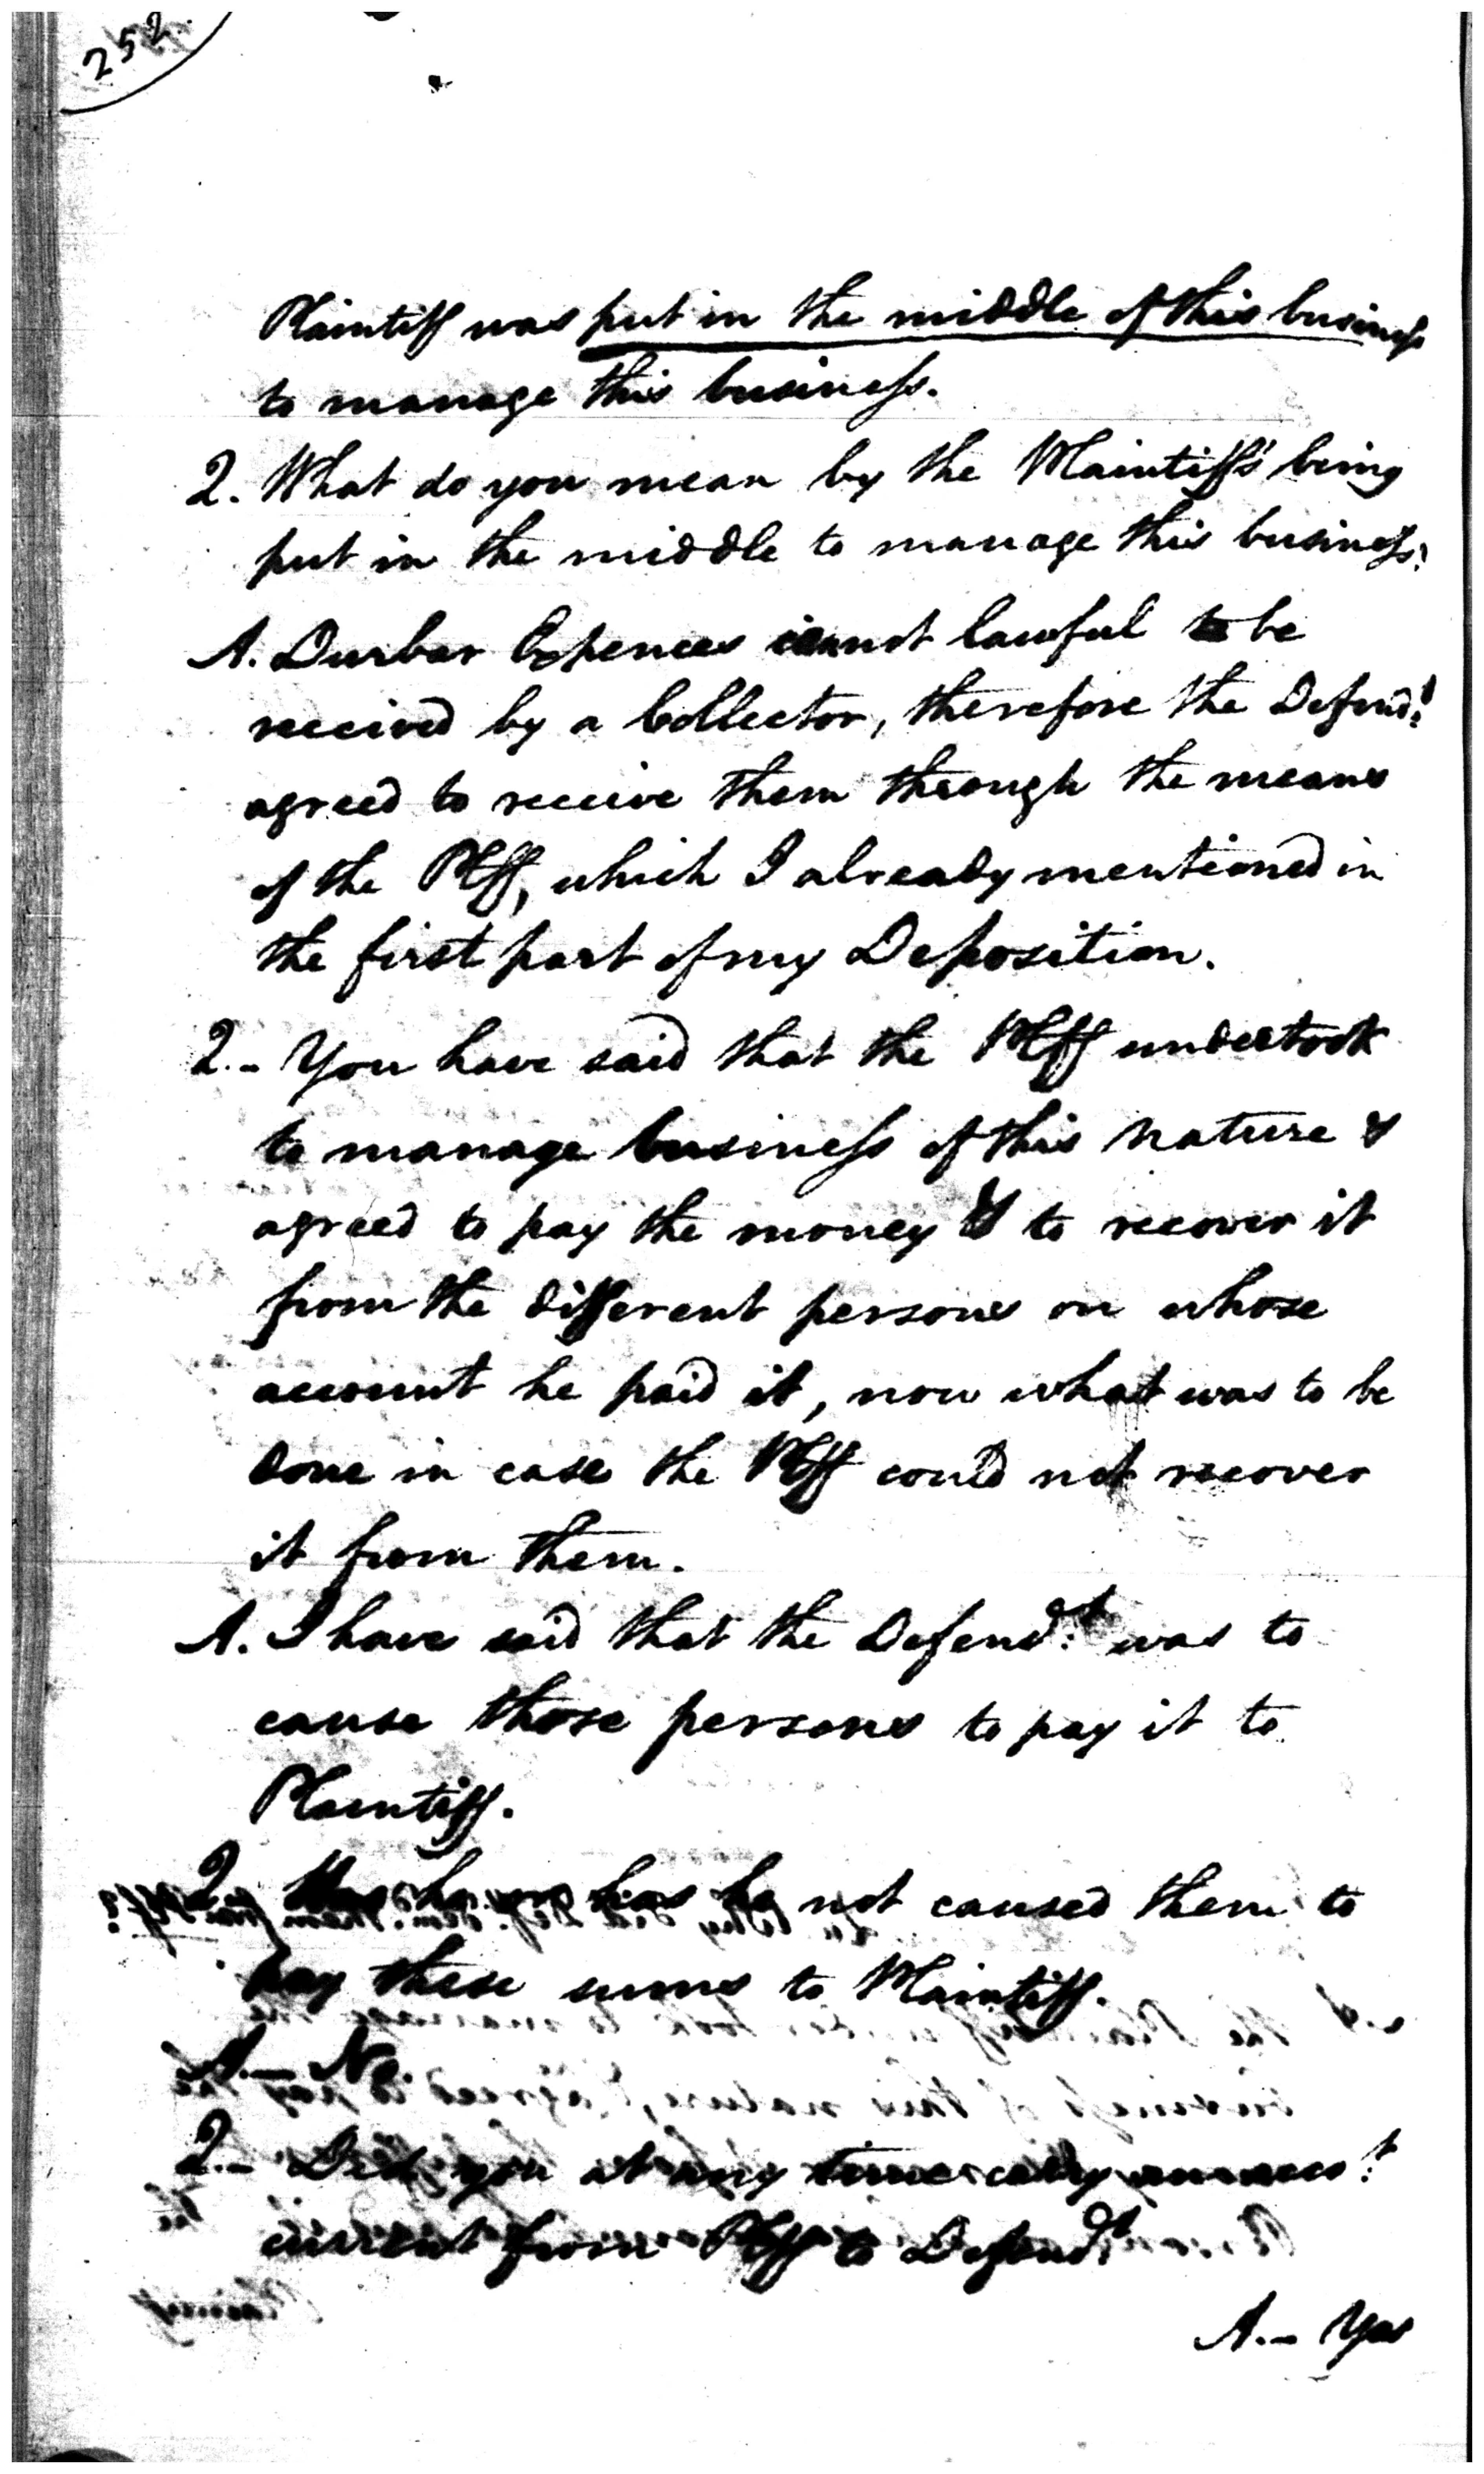 252.
Plaintiff was put in the middle of this business
to manage this business.
Q. What do you mean by the Plaintiff's being
put in the middle to manage this business?
A. Durbar Expences is not lawful to be
received by a Collector, therefore the Defendt.
agreed to receive them through the means
of the Plff, which I already mentioned in
the first part of my Deposition.
Q.- You have said that the Plff undertook
to manage business of this nature &
agreed to pay the money & to recover it
from the different persons on whose
account he paid it, now what was to be
done in case the Plff could not recover
it from them.
A. I have said that the Defendt. was to
cause those persons to pay it to
Plaintiff.
Q. has he not caused them to
pay these sums to Plaintiff.
A.- No.
Q.- Did you at any time carry
current from Plff to Defendt.
A.- Yes